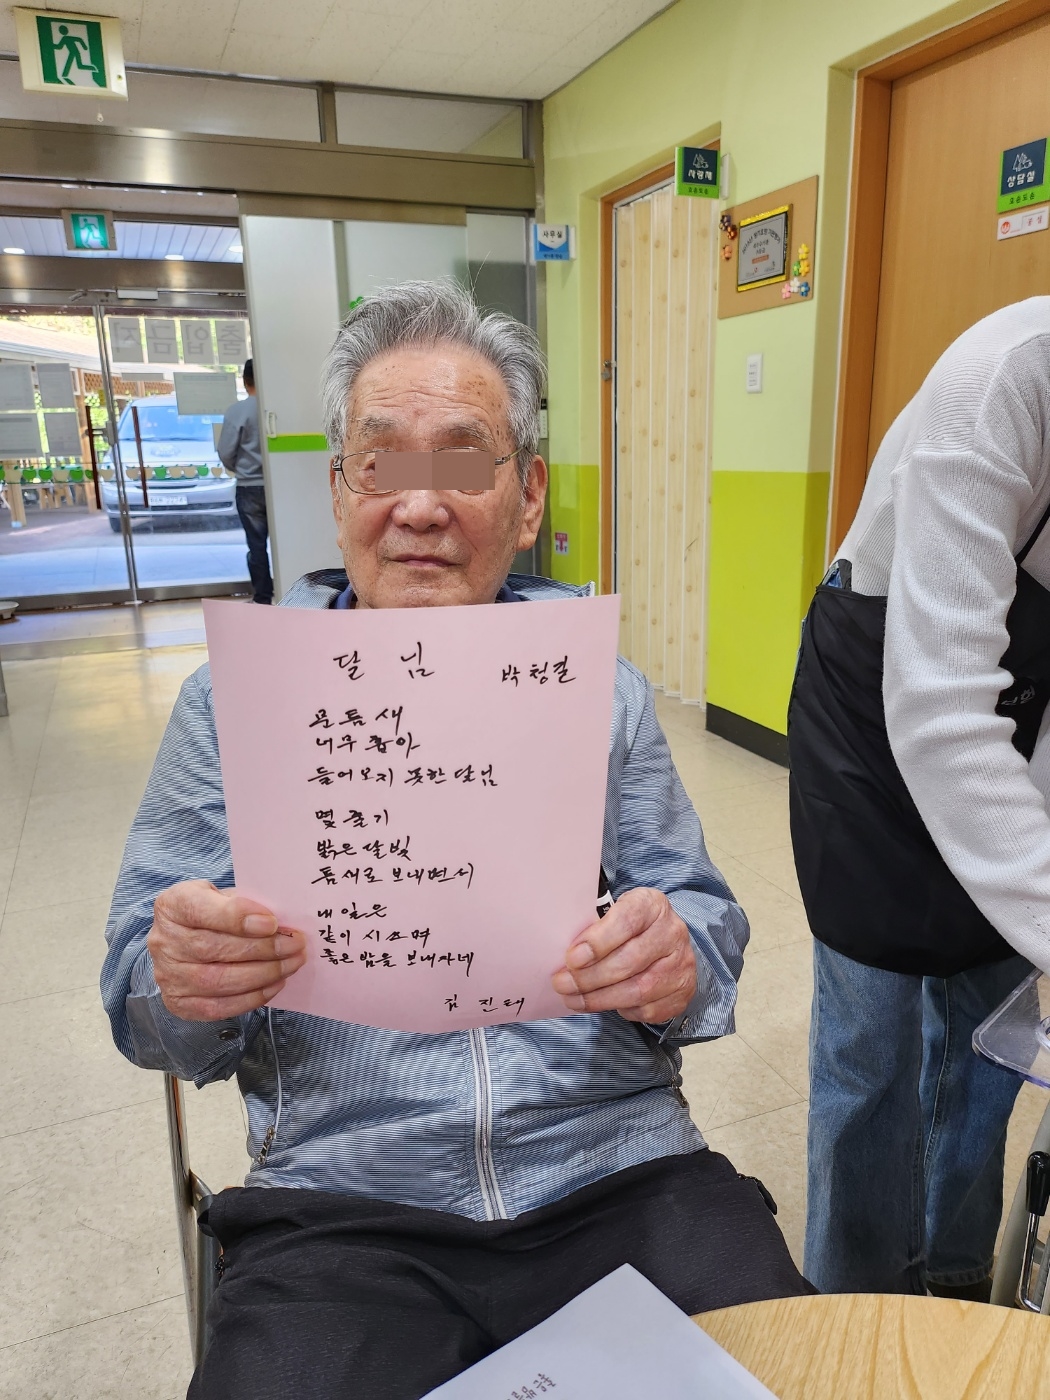 사무실
사랑채
상담실
출입금지
달 님
박청결
문틈새
너무 좁아
들어오지 못한 달님
몇 줄기
밝은 달빛
틈새로 보내면서
내일은
같이 시쓰며
좋은 밤을 보내자네
김 진태